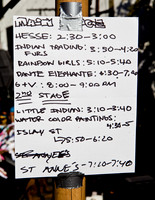 HESSE: 2:30-3:00
INDIAN TRADING: 3:50-4:20
FURS
RAINBOW GIRLS: 5:10-5:40
DANTE ELEPHANTE: 6:30-7:
G+V: 8:00-9:00 AM
2ND STAGE
LITTLE INDIAN: 3:10-3:40
WATER COLOR PAINTINGS:
4:30-5
ISLAY ST
↳5:50-6:20
ST ANNE'S-7:10-7:40